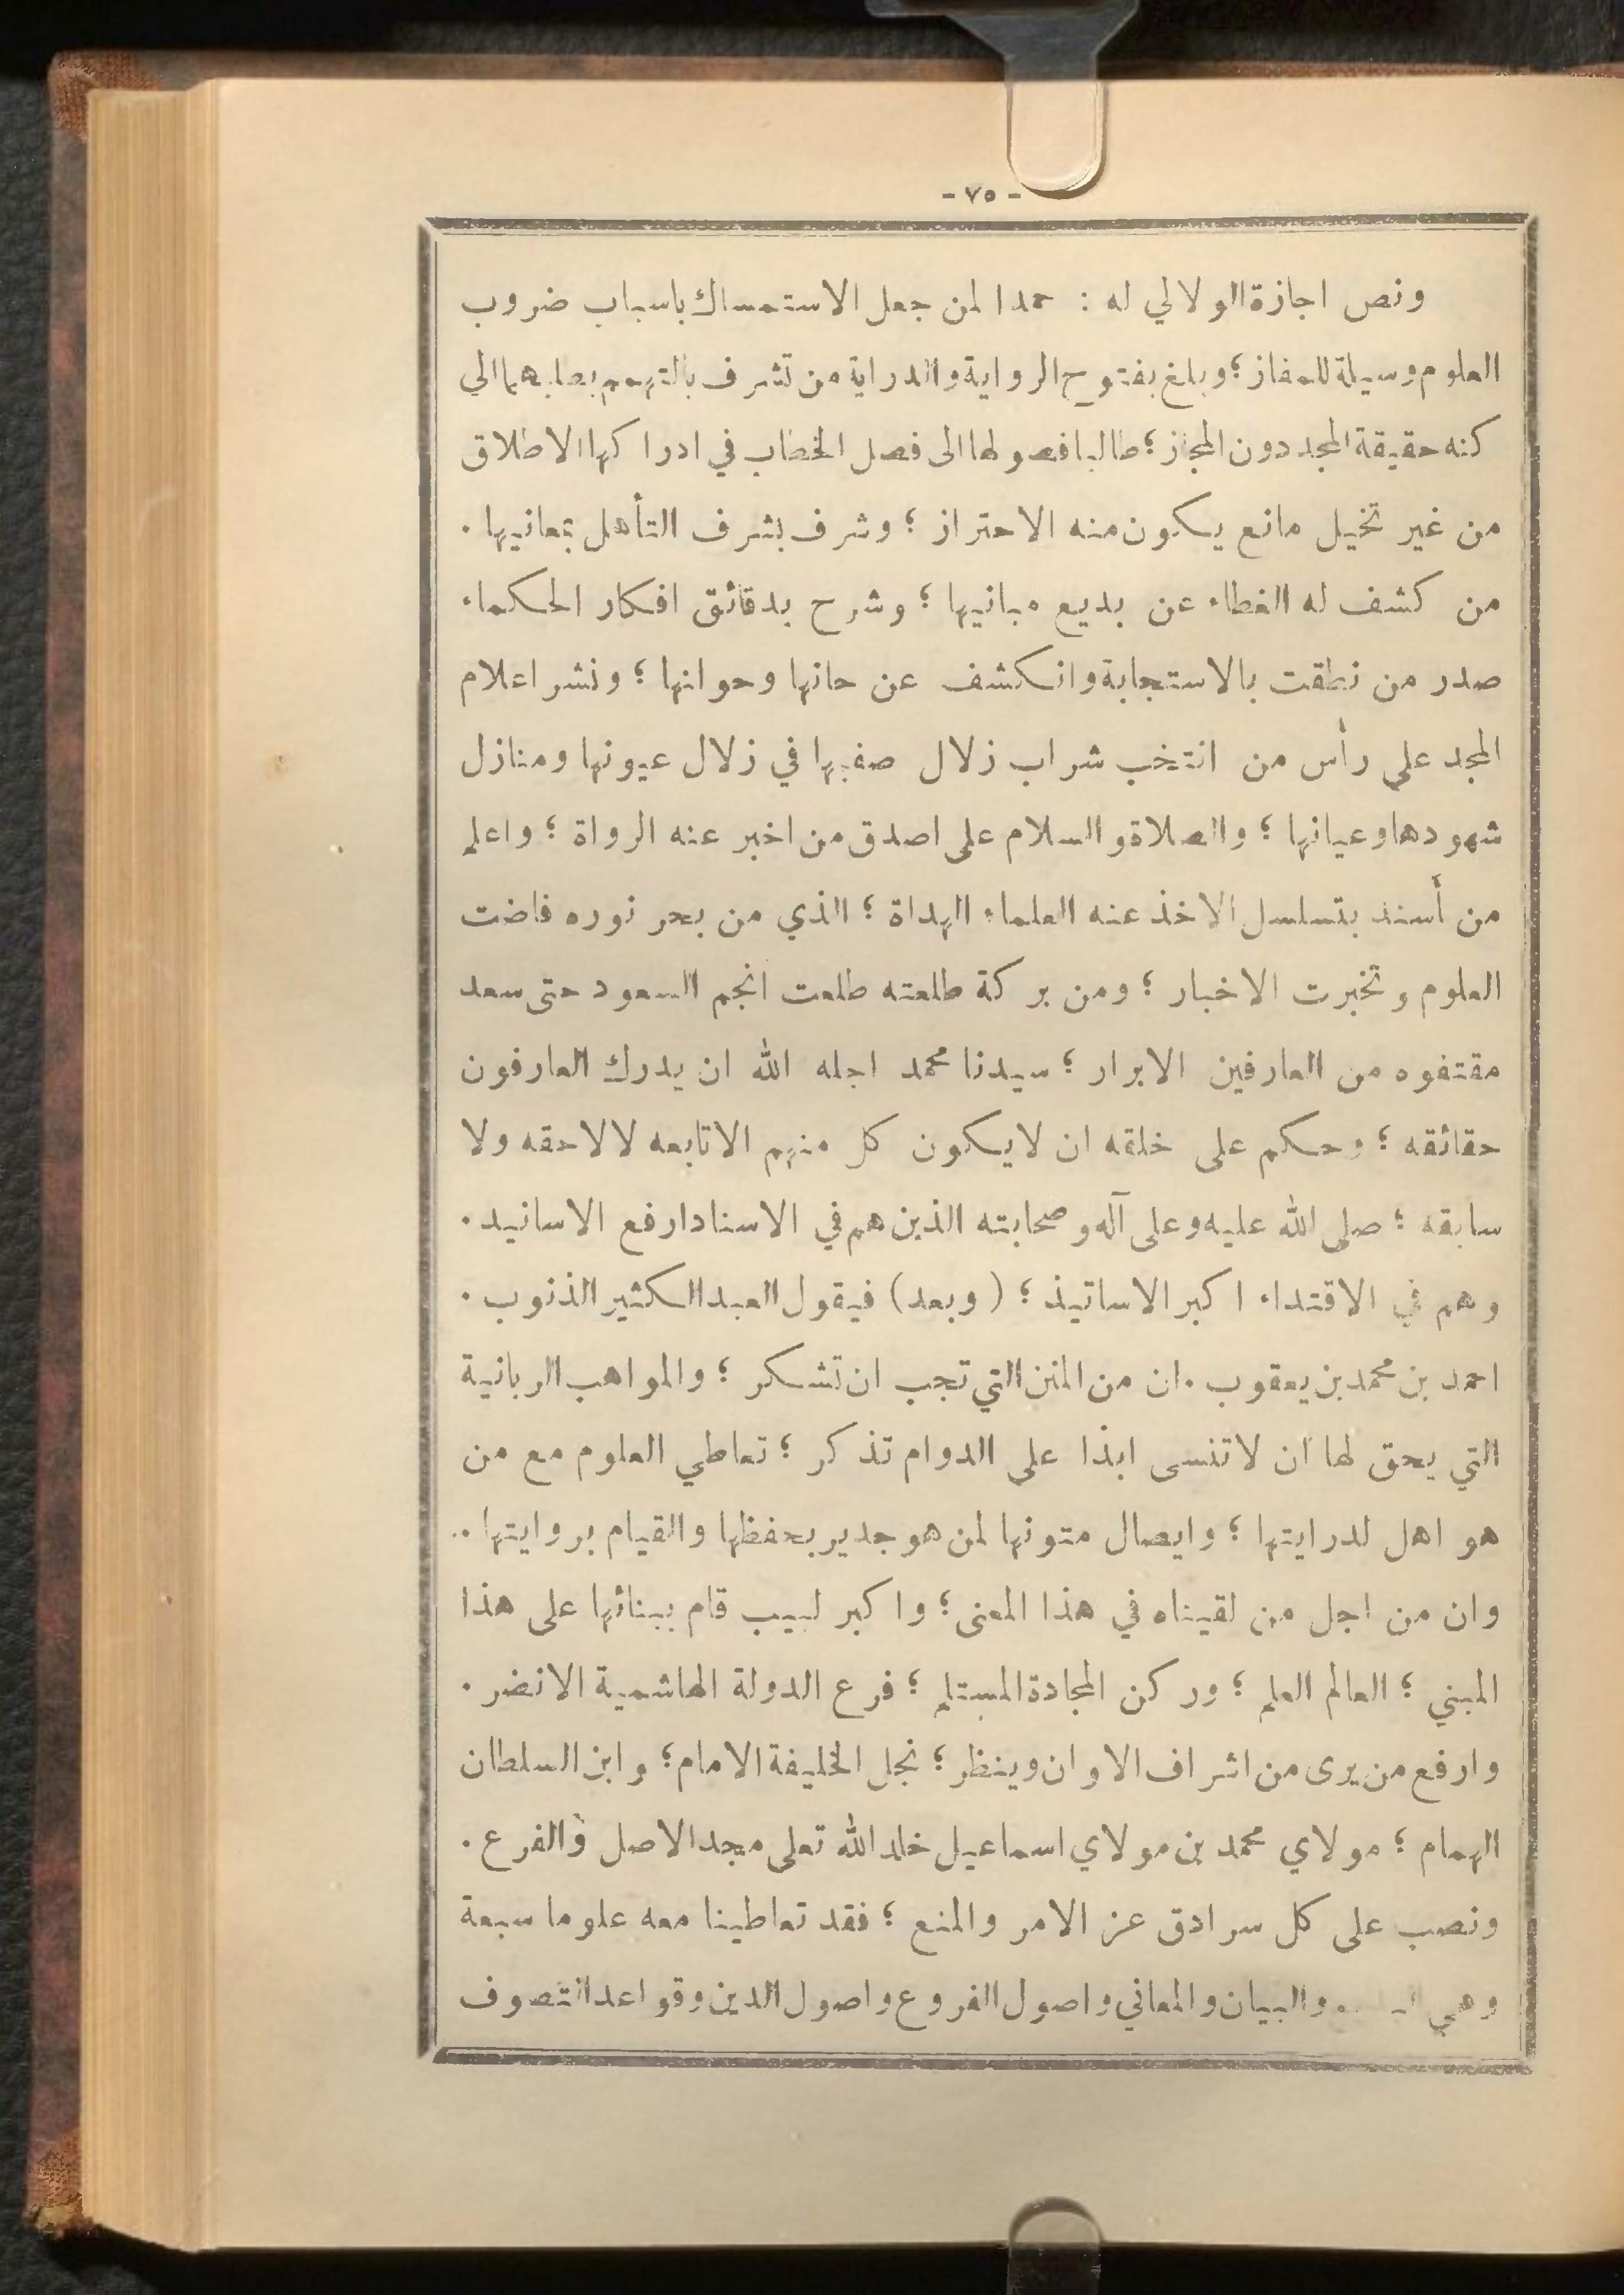 - ٧٥ -
ونص اجازة الولالي له : حمدا لمن جعل الاستمساك باسباب ضروب
العلوم وسيلة للمفاز ؛ وبلغ بفتوح الرواية والدراية من تشرف بالتهمم بطلبهما الى
كنه حقيقة المجد دون المجاز ؛ طالبا فصولها الى فصل الخطاب في ادراكها الاطلاق
من غير تخيل مانع يكون منه الاحتراز ؛ وشرف بشرف التأهل بمعانيها .
من كشف له الغطاء عن بديع مبانيها ؛ وشرح بدقائق افكار الحكماء
صدر من نطقت بالاستجابة وانكشف عن حانها وحوانها ؛ ونشر اعلام
المجد على رأس من انتخب شراب زلال في زلال عيونها ومنازل
شهودها وعيانها ؛ والصلاة والسلام على اصدق من اخبر عنه الرواة ؛ واعلم
من أسند بتسلسل الاخذ عنه العلماء الهداة ؛ الذي من بحر نوره فاضت
العلوم وتخبرت الاخبار ؛ ومن بركة طلعته طلعت انجم السعود حتى سعد
مقتفوه من العارفين الابرار ؛ سيدنا محمد اجله الله ان يدرك العارفون
حقائقه ؛ وحكم على خلقه ان لايكون كل منهم الا تابعه لا لاحقه ولا
سابقه ؛ صلى الله عليه وعلى آله وصحابته الذين هم في الاسناد ارفع الاسانيد .
وهم في الاقتداء اكبر الاساتيذ ؛ (وبعد) فيقول العبد الكثير الذنوب .
احمد بن محمد بن يعقوب . ان من المنن التي تجب ان تشكر ؛ والمواهب الربانية
التي يحق لها ان لاتنسى ابذا على الدوام تذكر ؛ تعاطي العلوم مع من
هو اهل لدرايتها ؛ وايصال متونها لمن هو جدير بحفظها والقيام بروايتها .
وان من اجل من لقيناه في هذا المعنى ؛ واكبر لبيب قام ببنائها على هذا
المبني ؛ العالم العلم ؛ وركن المجادة المستلم ؛ فرع الدولة الهاشمية الانضر .
وارفع من يرى من اشراف الاوان وينظر ؛ نجل الخليفة الامام ؛ وابن السلطان
الهمام ؛ مولاي محمد بن مولاي اسماعيل خلد الله تعلى مجد الاصل والفرع .
ونصب على كل سرادق عز الامر والمنع ؛ فقد تعاطينا معه علوما سبعة
وهي والبيان والمعاني واصول الفروع واصول الدين وقواعد التصوف